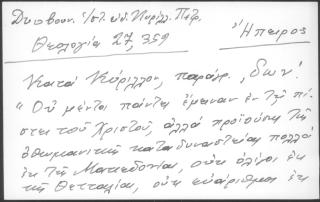 Διοβουν. Ἱστ. ὑ.δ. Κυρίλλ. Πατρ.
Θεολογία 27, 359
Ἤπειρος
Κατά Κύριλλον, παράγρ.
"Οὐ μέντοι πάντες ἔμειναν ἐν τῇ πί-
στει τοῦ Χριστοῦ, ἀλλά προϊούσης τῆς
ὀθωμανικῆς καταδυναστείας πολλοί
ἐκ τῆς Μακεδονίας, οὐκ ὀλίγοι ἐκ
τῆς Θετταλίας, οὐκ εὐάριθμοι ἐκ